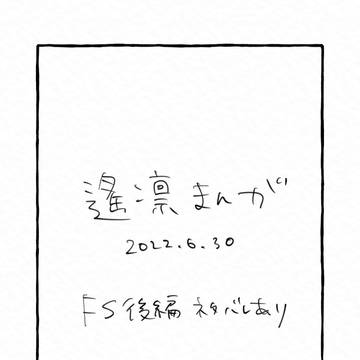 遙凛まんが
2022.6.30
FS後編ネタバレあり